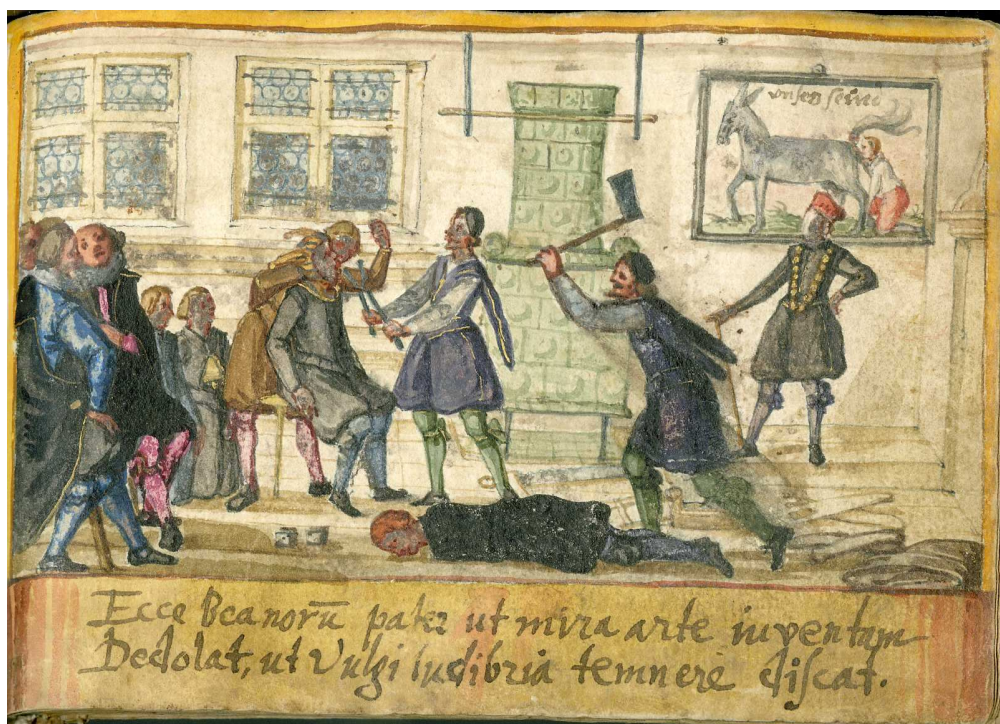 unser seind
Ecce Beanorũ pater ut mira arte iuventam
Dedolat, ut Vulgi ludibria temnere discat.